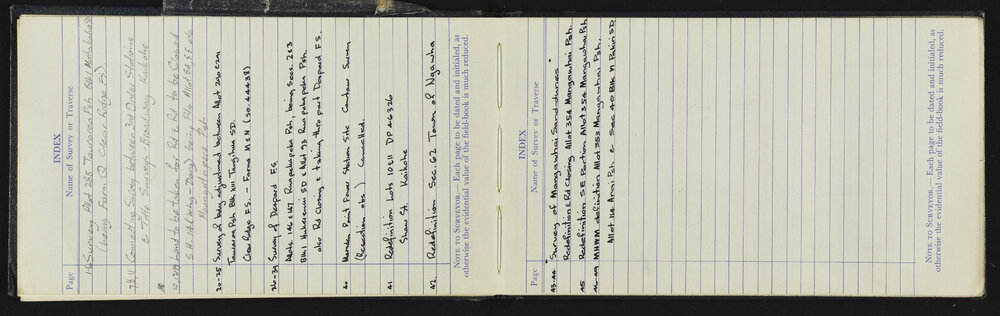 INDEX
Page
Name of Survey or Traverse
1-6 Survey Allot 285 Tauraroa Psh Blk 1 Matakohe
(being Farm Q Clear Ridge Es)
7,8,11 Connecting Survey between 3rd Order Stations
& Title Surveys - Broadway Kaikohe
10,12,19 Land to be taken for Rd & Rd to be Closed
Maungatapere Psh
20-25 Survey of bdy adjustment between Allot 290 & 291
Tauraroa Psh Blk XIII Tangihua SD.
Clear Ridge F.S. - Farms M & N (SO. 44438)
26-39 Survey of Despard F.S.
Allots. 146 & 147 Ruapekapeka Psh, being Secs. 2 & 3
Blk 1 Hukerenui SD & Allot 93 Ruapekapeka Psh.
also Rd Closing & taking thro part Despard F.S.
40 Marsden Point Power Station Site Contour Survey
(Resection obs) Cancelled.
41 Redefinition Lots 10 & 11 DP 46326
Shaw St. Kaikohe
42. Redefinition Sec. 62 Town of Ngawha
NOTE TO SURVEYOR.—Each page to be dated and initialed, as
otherwise the evidential value of the field-book is much reduced.
INDEX
Page
Name of Survey or Traverse
43-44 Survey of "Mangawhai Sand-dunes"
Redefinition & Rd Closing Allot 354 Mangawhai Psh.
45 Redefinition S.E Portion Allot 354 Mangawhai Psh
46-49 MHWM definition Allot 353 Mangawhai Psh.
Allot 114 Arai Psh & Sec 40 Blk IV Pakiri S.D.
NOTE TO SURVEYOR.—Each page to be dated and initialed, as
otherwise the evidential value of the field-book is much reduced.